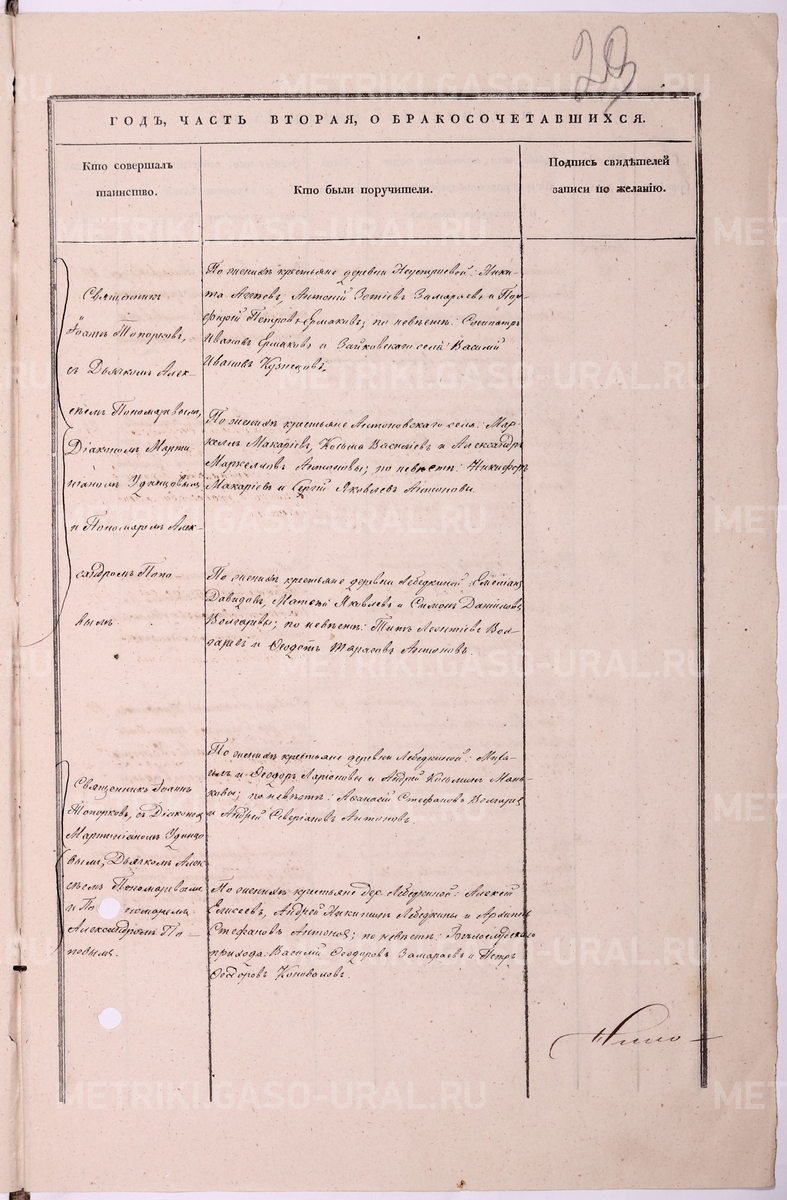 29
ГОДЪ, ЧАСТЬ ВТОРАЯ, О БРАКОСОЧЕТАВШИХСЯ.
Кто совершалъ
таинство.
Кто были поручители.
Подпись свидѣтелей
записи по желанію.
Священникъ
Іоаннъ Топорковъ,
съ Дьячкомъ Алек-
сѣемъ Пономаревымъ,
Діакономъ Марти
ніаномъ Удинцовымъ
и Пономаремъ Алек-
сандромъ Попо-
вымъ
По женихѣ крестьяне деревни Неустроевой: Ники-
та, Антоній Зотіевъ Замараевъ и Пор-
фирій Петровъ Ермаковъ; по невѣстѣ: Сосипатръ
Ивановъ Ермаковъ и Зайковскаго села Василій
Ивановъ Кузнецовъ.
По женихѣ крестьяне Антоновскаго села: Мар-
келъ Макаріевъ, Козьма Васильевъ и Александръ
Маркелловъ Антоновы; по невѣстѣ: Никифоръ
Макаріевъ и Сергій Яковлевъ Антоновы.
По женихѣ крестьяне деревни Лебедкиной:
Давидовъ, Матѳей Яковлевъ и Симонъ Даніиловъ
Болгаревы; по невѣстѣ: Титъ Леонтіевъ Бол-
гаревъ и Ѳеодотъ Тарасовъ Антоновъ.
Священникъ Іоаннъ
Топорковъ, съ Діакономъ
Мартиніаномъ Удинцо-
вымъ, Дьячкомъ Алек-
сѣемъ Пономаревымъ
и Пономаремъ
Александромъ По-
повымъ.
По женихѣ крестьяне деревни Лебедкиной: Миха-
илъ и Ѳеодоръ Ларіоновы и Андрей Козьминъ Мань-
ковы; по невѣстѣ: Аѳанасій Стефановъ Болгаревъ
и Андрей Северіановъ Антоновъ.
По женихѣ крестьяне дер. Лебедкиной: Алексѣй
Елисеевъ, Андрей Никитинъ Лебедкины и Архипъ
Стефановъ Антоновъ; по невѣстѣ: Бѣлослудскаго
прихода Василій Ѳеодоровъ Замараевъ и Петръ
Ѳеодоровъ Коноваловъ.
METRIKI.GASO-URAL.RU